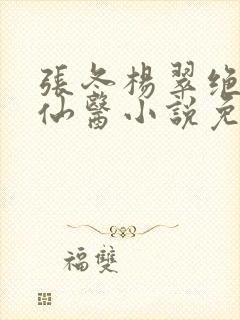 張冬楊翠绝
仙醫小説免
福雙